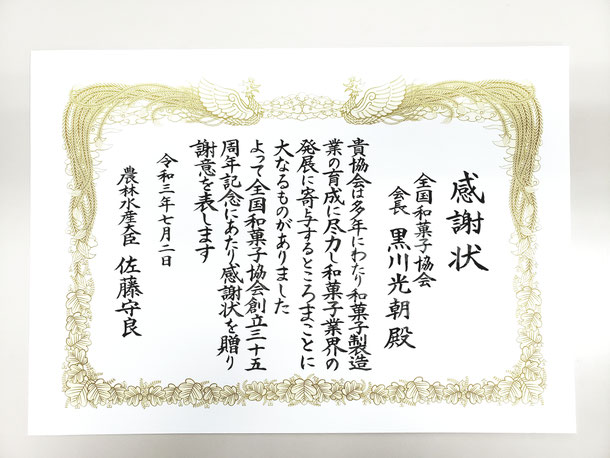 感謝状
全国和菓子協会
会長 黒川光朝殿
貴協会は多年にわたり和菓子製造
業の育成に尽力し和菓子業界の
発展に寄与するところまことに
大なるものがありました
よって全国和菓子協会創立三十五
周年記念にあたり感謝状を贈り
謝意を表します
令和三年七月二日
農林水産大臣 佐藤守良